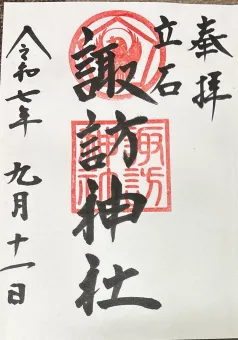 奉拝
立石
諏訪神社
諏訪神社
令和七年 九月十一日